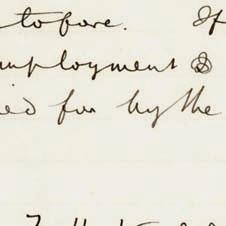 tofore. If
employment &
ied for by the